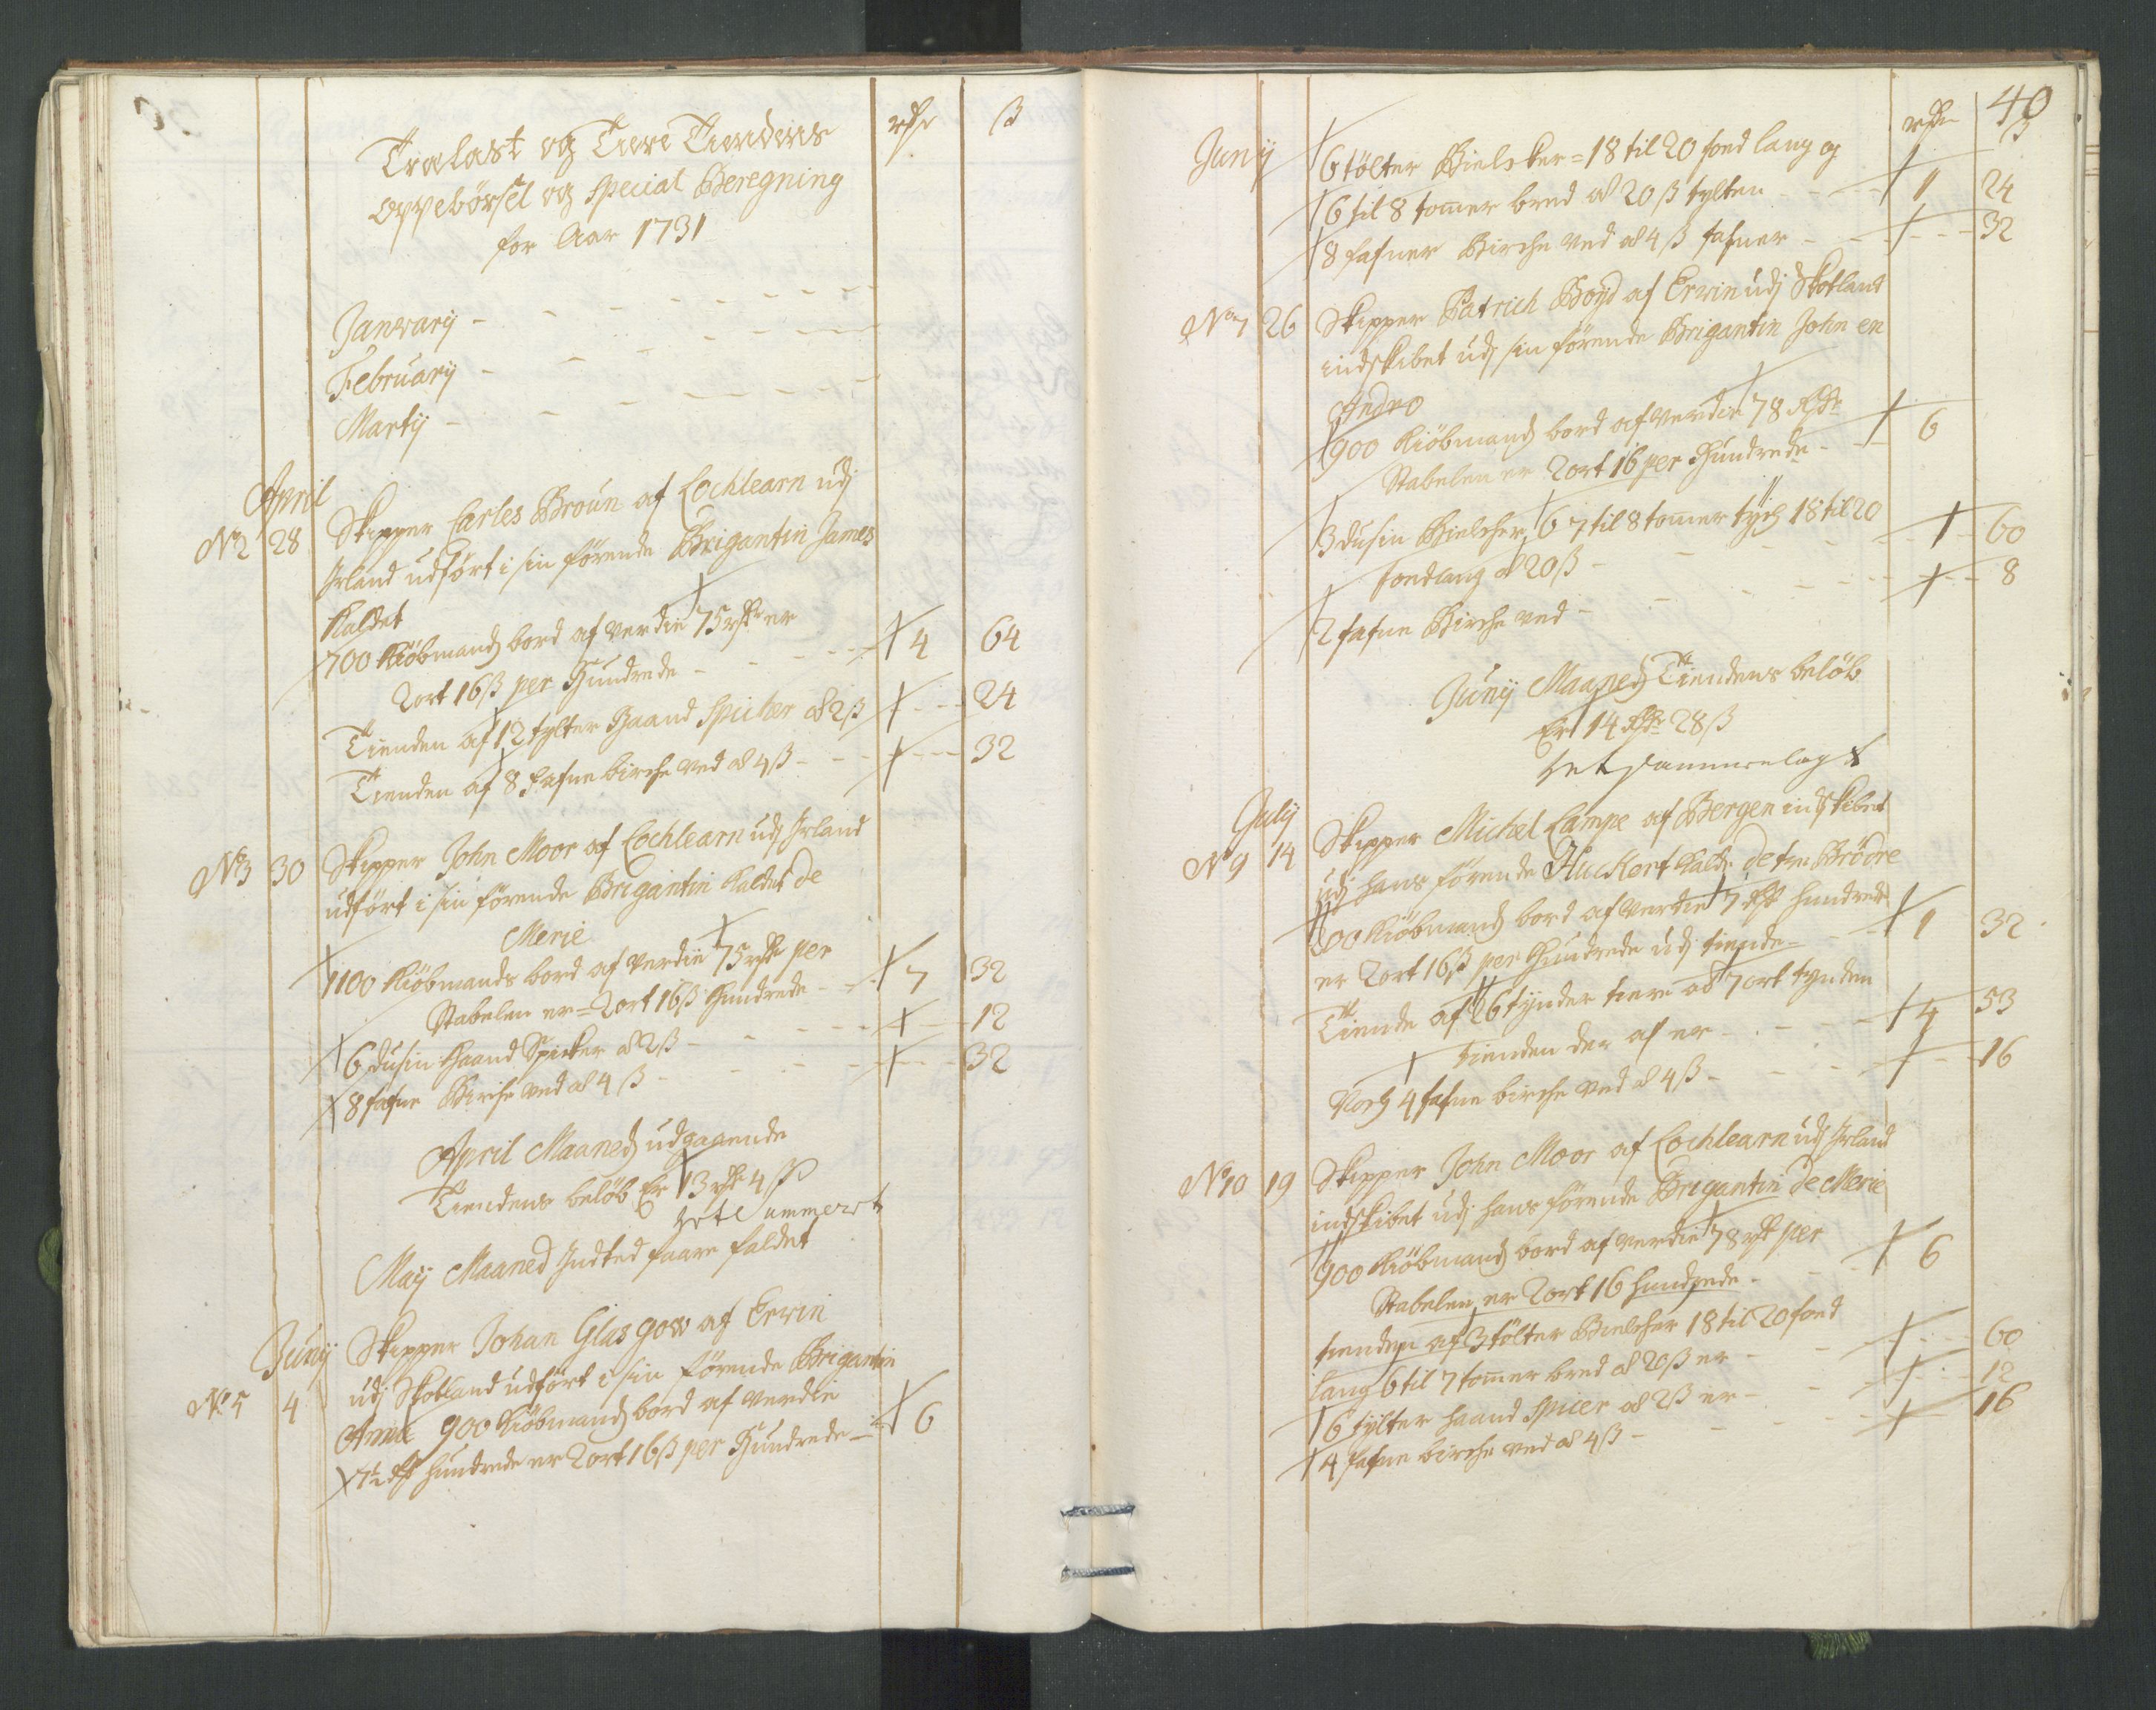 rdr ß
Tralast og Tiere Tiendens
Oppebörsel og Special Beregning
for Aar 1731
Janvarij - - - - - - -
Februarij - - - - - -
Martij - - - - - -
April
No 2 28 Skipper Carles Broun af Lochlearn udj
Irland udfört i sin förende Brigantin James
Kaldet
700 Kiöbmands bord af verdie 75 rdr er
2 ort 16 ß per Hundrede - - - - 4 64
Tienden af 12 tylter Haand Spicker à 2 ß - - - 24
Tienden af 8 fafne birche ved à 4 ß - - - 32
No 3 30 Skipper John Moor af Lochlearn udj Irland
udfört i sin förende Brigantin Kaldet de
Merie
1100 Kiöbmands bord af verdie 75 rdr per
Stabelen er = 2 ort 16 ß Hundrede - - 7 32
6 dusin Haand Spicker à 2 ß - - - - 12
8 fafne Birche ved à 4 ß - - - - 32
April Maaneds udgaaende
Tiendens belöb Er 13 rdr 4 ß
May Maaned Indted faare faldet
Junij Skipper Johan Glasgow af Ervin
No 5 4 udj Skotland udfört i sin förende Brigantin
Anna 900 Kiöbmands bord af verdie
7½ rdr hundrede er 2 ort 16 ß per Hundrede - 6
40
rdr ß
Junij 6 tölter Bielcker = 18 til 20 foed lang og
6 til 8 tommer bred à 20 ß tylten - - - 1 24
8 fafner Birche ved à 4 ß fafner - - - 32
No 7 26 Skipper Patrich Boyd af Ervin udj Skotland
indskibet udj sin förende Brigantin John en
Andro
900 Kiöbmands bord af verdie 78 Rdr
Stabelen er 2 ort 16 per Hundrede - - 6
3 dusin Bielcher 6 7 til 8 tommer tych 18 til 20
foed lang à 20 ß - - - - 60
2 fafne Birche ved - - - - 8
Junij Maaneds Tiendens belöb
Er 14 Rdr 28 ß
July
No 9 14 Skipper Michel Lampe af Bergen indskibet
udj hans förende Huckert Kaldr de tre Brödre
200 Kiöbmands bord af verdie 7 rdr hundrede
er 2 ort 16 ß per Hundrede udj tiende - - 1 32
Tiende af 26 tynder tiere à 7 ort tynden
tienden der af er - - - - 4 53
Noch 4 fafne birche ved à 4 ß - - - 16
No 10 19 Skipper John Moor af Lochlearn udj Irland
indskibet udj hans förende Brigantin de Merie
900 Kiöbmands bord af verdie 78 rdr per
Stabelen er 2 ort 16 hundrede - - - 6
tienden af 3 tölter Bielcher 18 til 20 foed
lang 6 til 7 tommer bred à 20 ß er - - - 60
6 tylter haand Spicer à 2 ß er - - - 12
4 fafne birche ved à 4 ß - - - 16